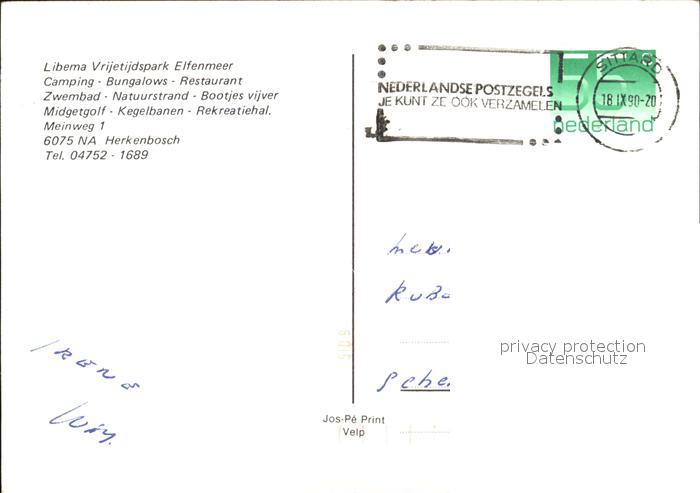 Libema Vrijetijdspark Elfenmeer
Camping - Bungalows - Restaurant
Zwembad - Natuurstrand - Bootjes vijver
Midgetgolf - Kegelbanen - Rekreatiehal.
Meinweg 1
6075 NA Herkenbosch
Tel. 04752 - 1689
NEDERLANDSE POSTZEGELS
JE KUNT ZE OOK VERZAMELEN
55
nederland
SITTARD
18 IX 90-20
privacy protection
Datenschutz
Irene
Wim.
Jos-Pé Print
Velp